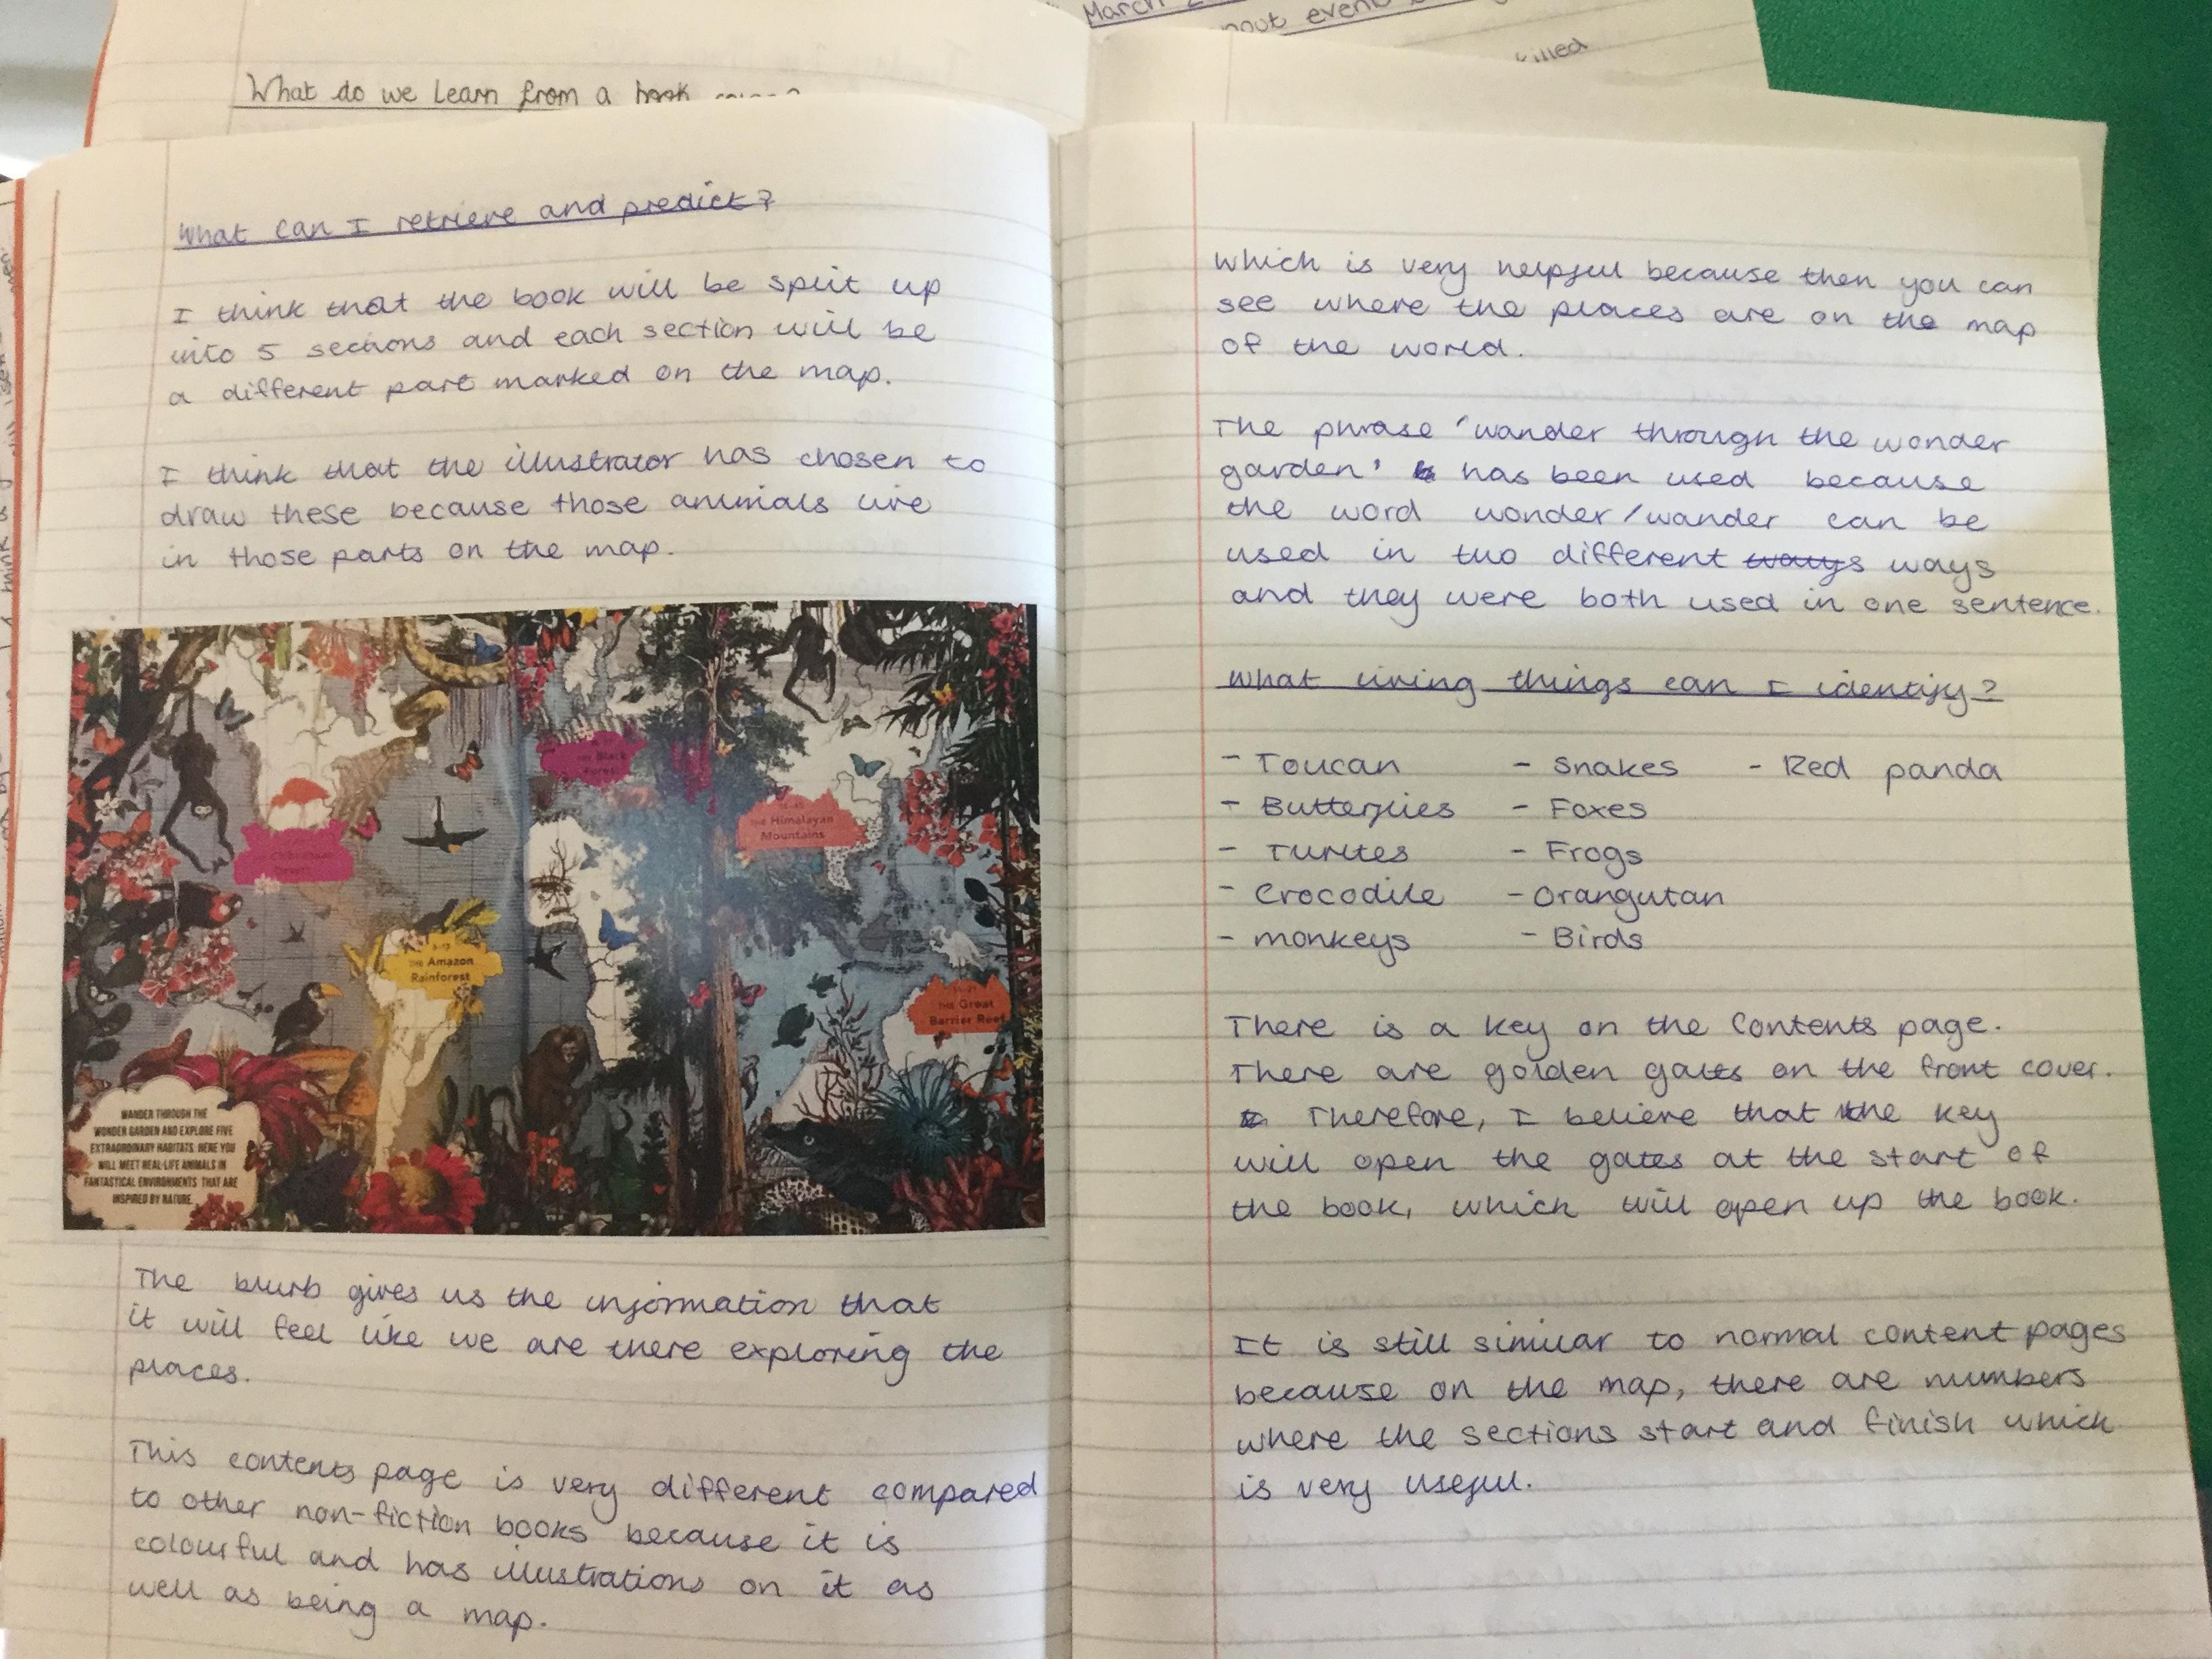 March
out event
killed
What do we learn from a book
What can I retrieve and predict?
I think that the book will be split up
into 5 sections and each section will be
a different part marked on the map.
I think that the illustrator has chosen to
draw these because those animals live
in those parts on the map.
THE Black
Forest
THE Himalayan
Mountains
THE Amazon
Rainforest
THE Great
Barrier Reef
WANDER THROUGH THE
WONDER GARDEN AND EXPLORE FIVE
EXTRAORDINARY HABITATS. HERE YOU
WILL MEET REAL-LIFE ANIMALS IN
FANTASTICAL ENVIRONMENTS THAT ARE
INSPIRED BY NATURE.
The blurb gives us the information that
it will feel like we are there exploring the
places.
This contents page is very different compared
to other non-fiction books because it is
colourful and has illustrations on it as
well as being a map.
which is very helpful because then you can
see where the places are on the map
of the world.
The phrase 'wander through the wonder
garden' has been used because
the word wonder/wander can be
used in two different ways ways
and they were both used in one sentence.
What living things can I identify?
- Toucan - Snakes - Red panda
- Butterflies - Foxes
- Turtles - Frogs
- Crocodile - Orangutan
- monkeys - Birds
There is a key on the Contents page.
There are golden gates on the front cover.
Therefore, I believe that the key
will open the gates at the start of
the book, which will open up the book.
It is still similar to normal content pages
because on the map, there are numbers
where the sections start and finish which
is very useful.